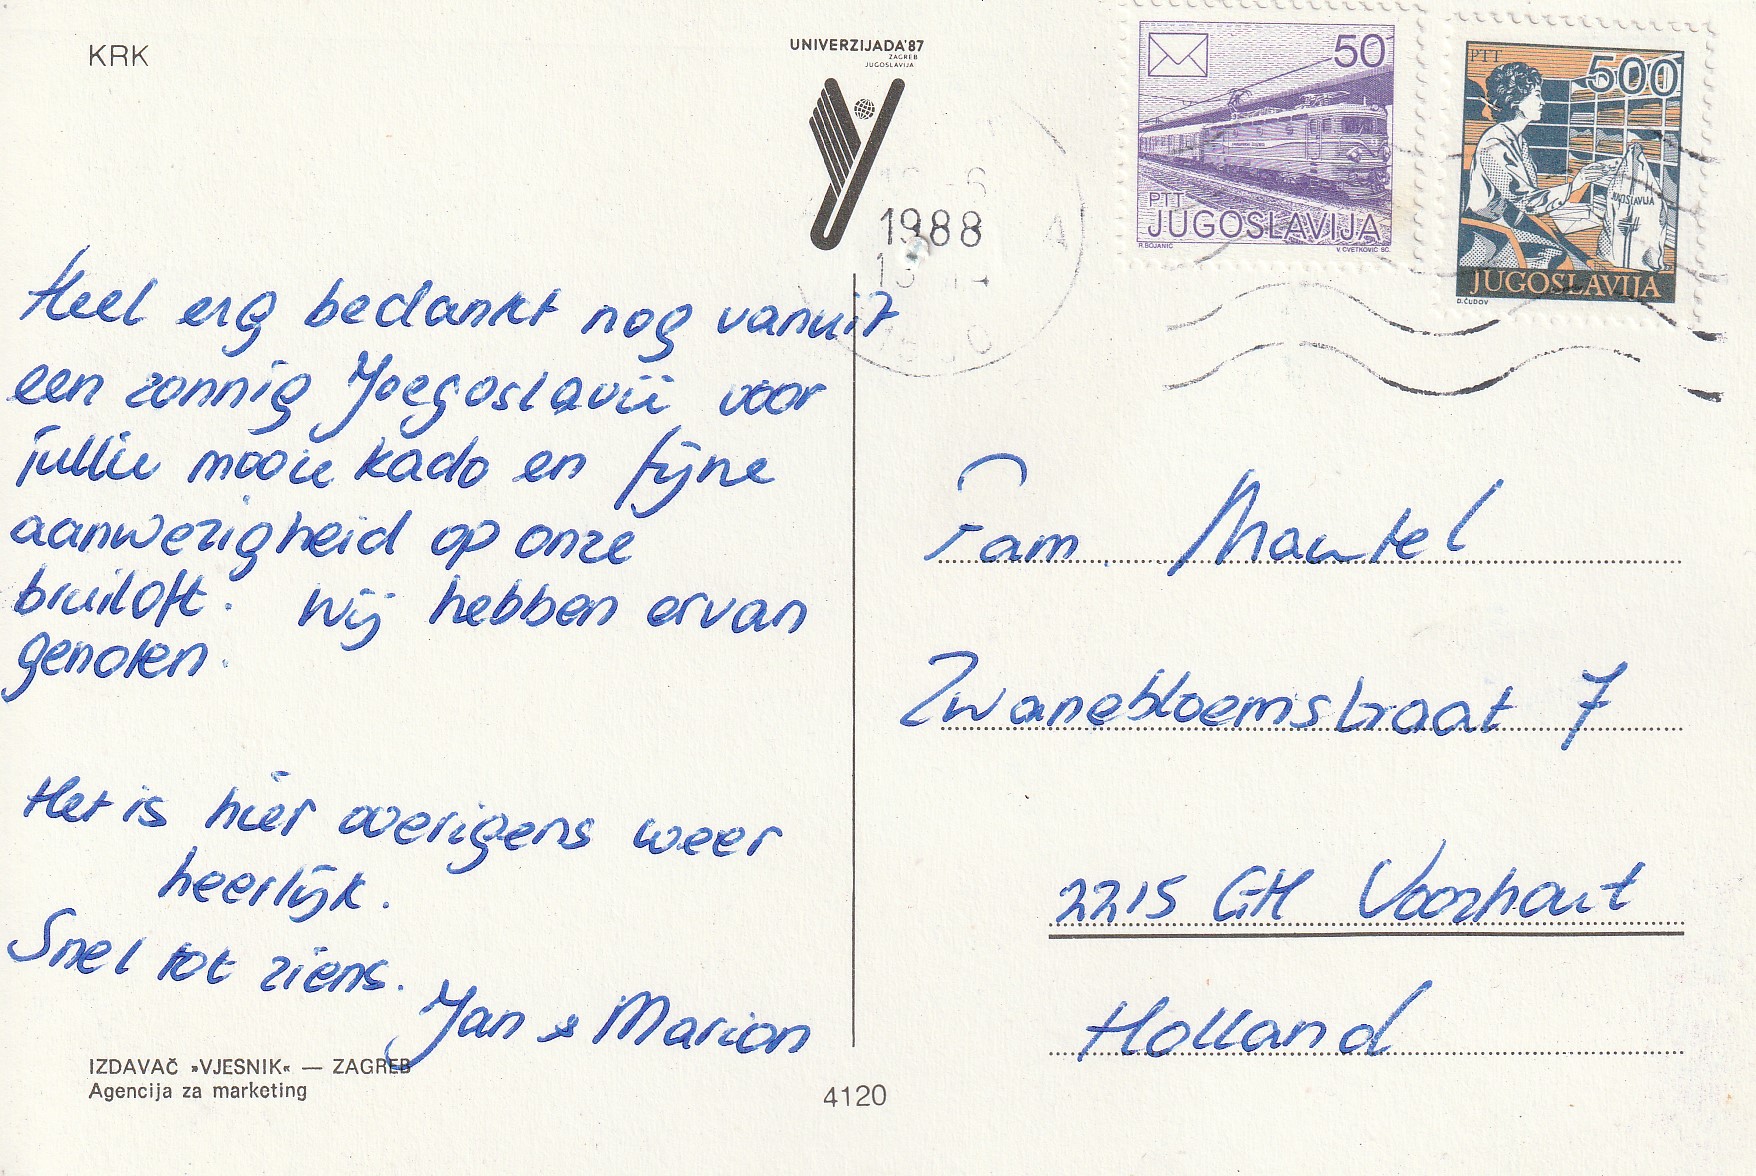 KRK
UNIVERZIJADA'87
ZAGREB
JUGOSLAVIJA
1988
50
PTT
JUGOSLAVIJA
R.BOJANIĆ
V. CVETKOVIĆ SC.
PTT
500
JUGOSLAVIJA
JUGOSLAVIJA
D.ČUDOV
Heel erg bedankt nog vanuit
een zonnig Joegoslavië voor
jullie mooie kado en fijne
aanwezigheid op onze
bruiloft. Wij hebben ervan
genoten.
Het is hier overigens weer
heerlijk.
Snel tot ziens.
Jan & Marion
Fam. Mantel
Zwanebloemstraat 7
2215 GH Voorhout
Holland
IZDAVAČ »VJESNIK« — ZAGREB
Agencija za marketing
4120